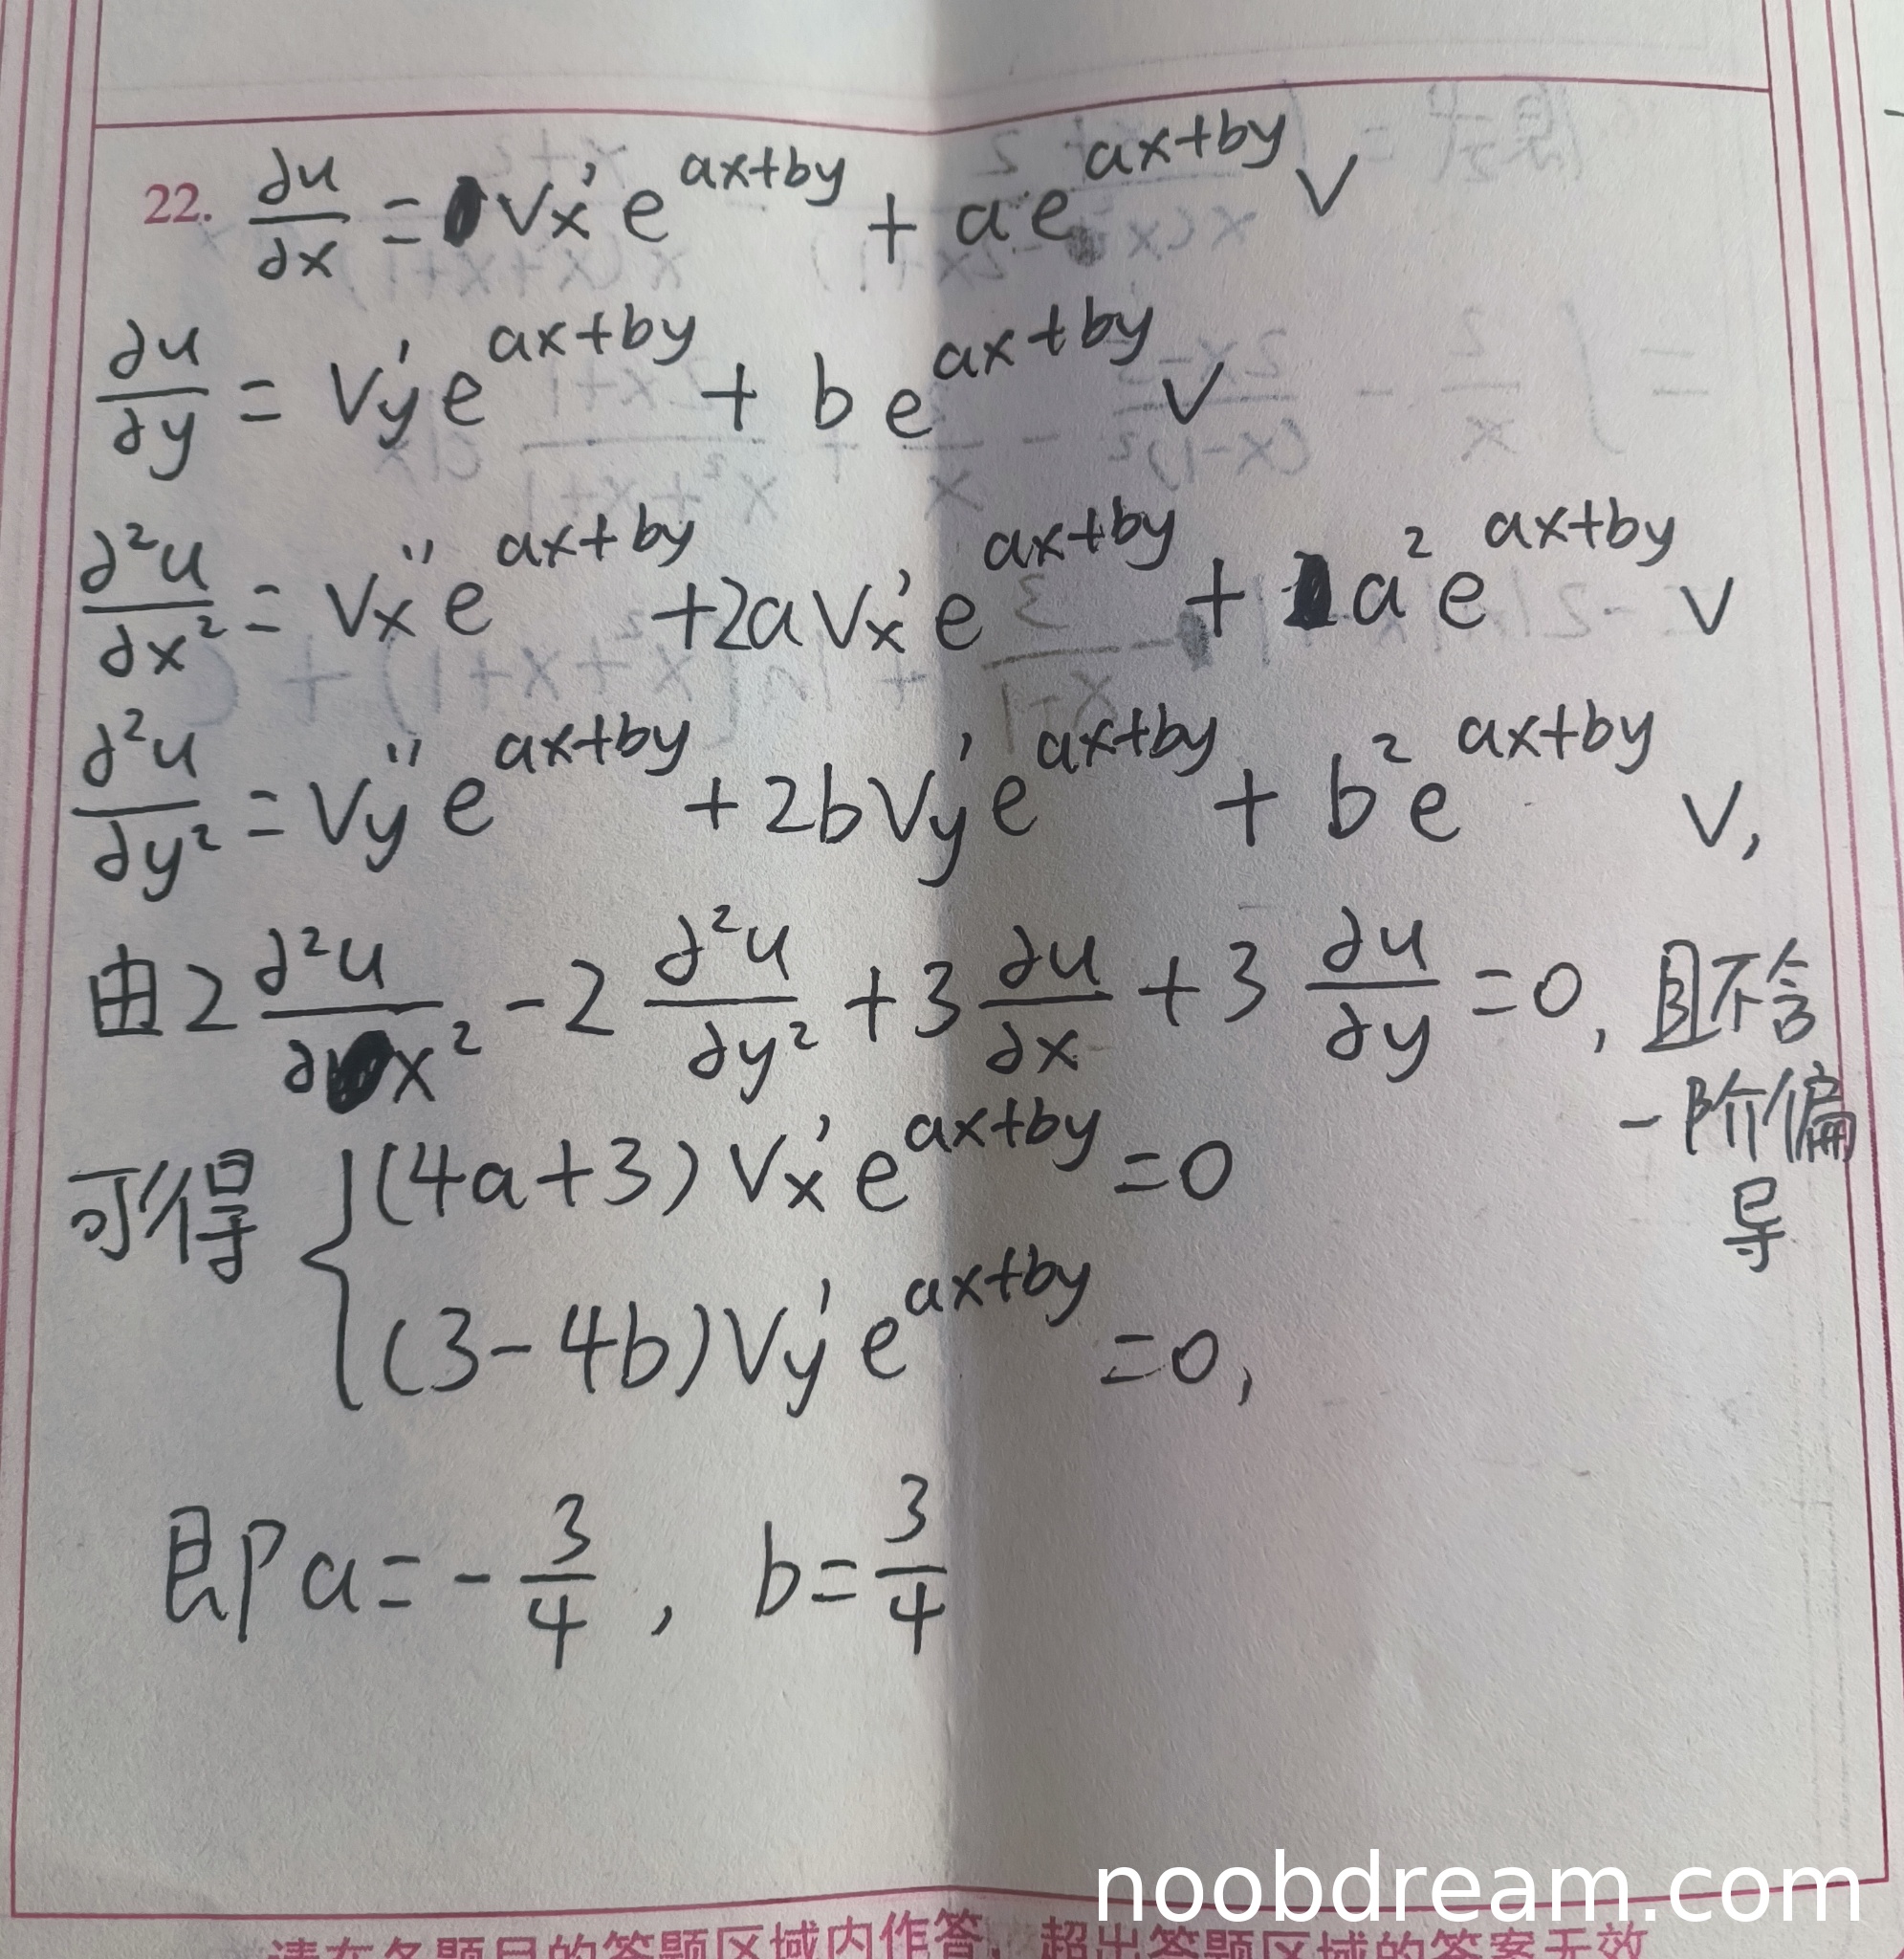 22. ∂u/∂x = Vx' e^(ax+by) + a e^(ax+by) V
∂u/∂y = Vy' e^(ax+by) + b e^(ax+by) V
∂²u/∂x² = Vx'' e^(ax+by) + 2a Vx' e^(ax+by) + a² e^(ax+by) V
∂²u/∂y² = Vy'' e^(ax+by) + 2b Vy' e^(ax+by) + b² e^(ax+by) V,
由 2 ∂²u/∂x² - 2 ∂²u/∂y² + 3 ∂u/∂x + 3 ∂u/∂y = 0, 且不含
一阶偏
导
可得 { (4a+3) Vx' e^(ax+by) = 0
(3-4b) Vy' e^(ax+by) = 0,
即 a = -3/4, b = 3/4
noobdream.com
请在各题目的答题区域内作答，超出答题区域的答案无效